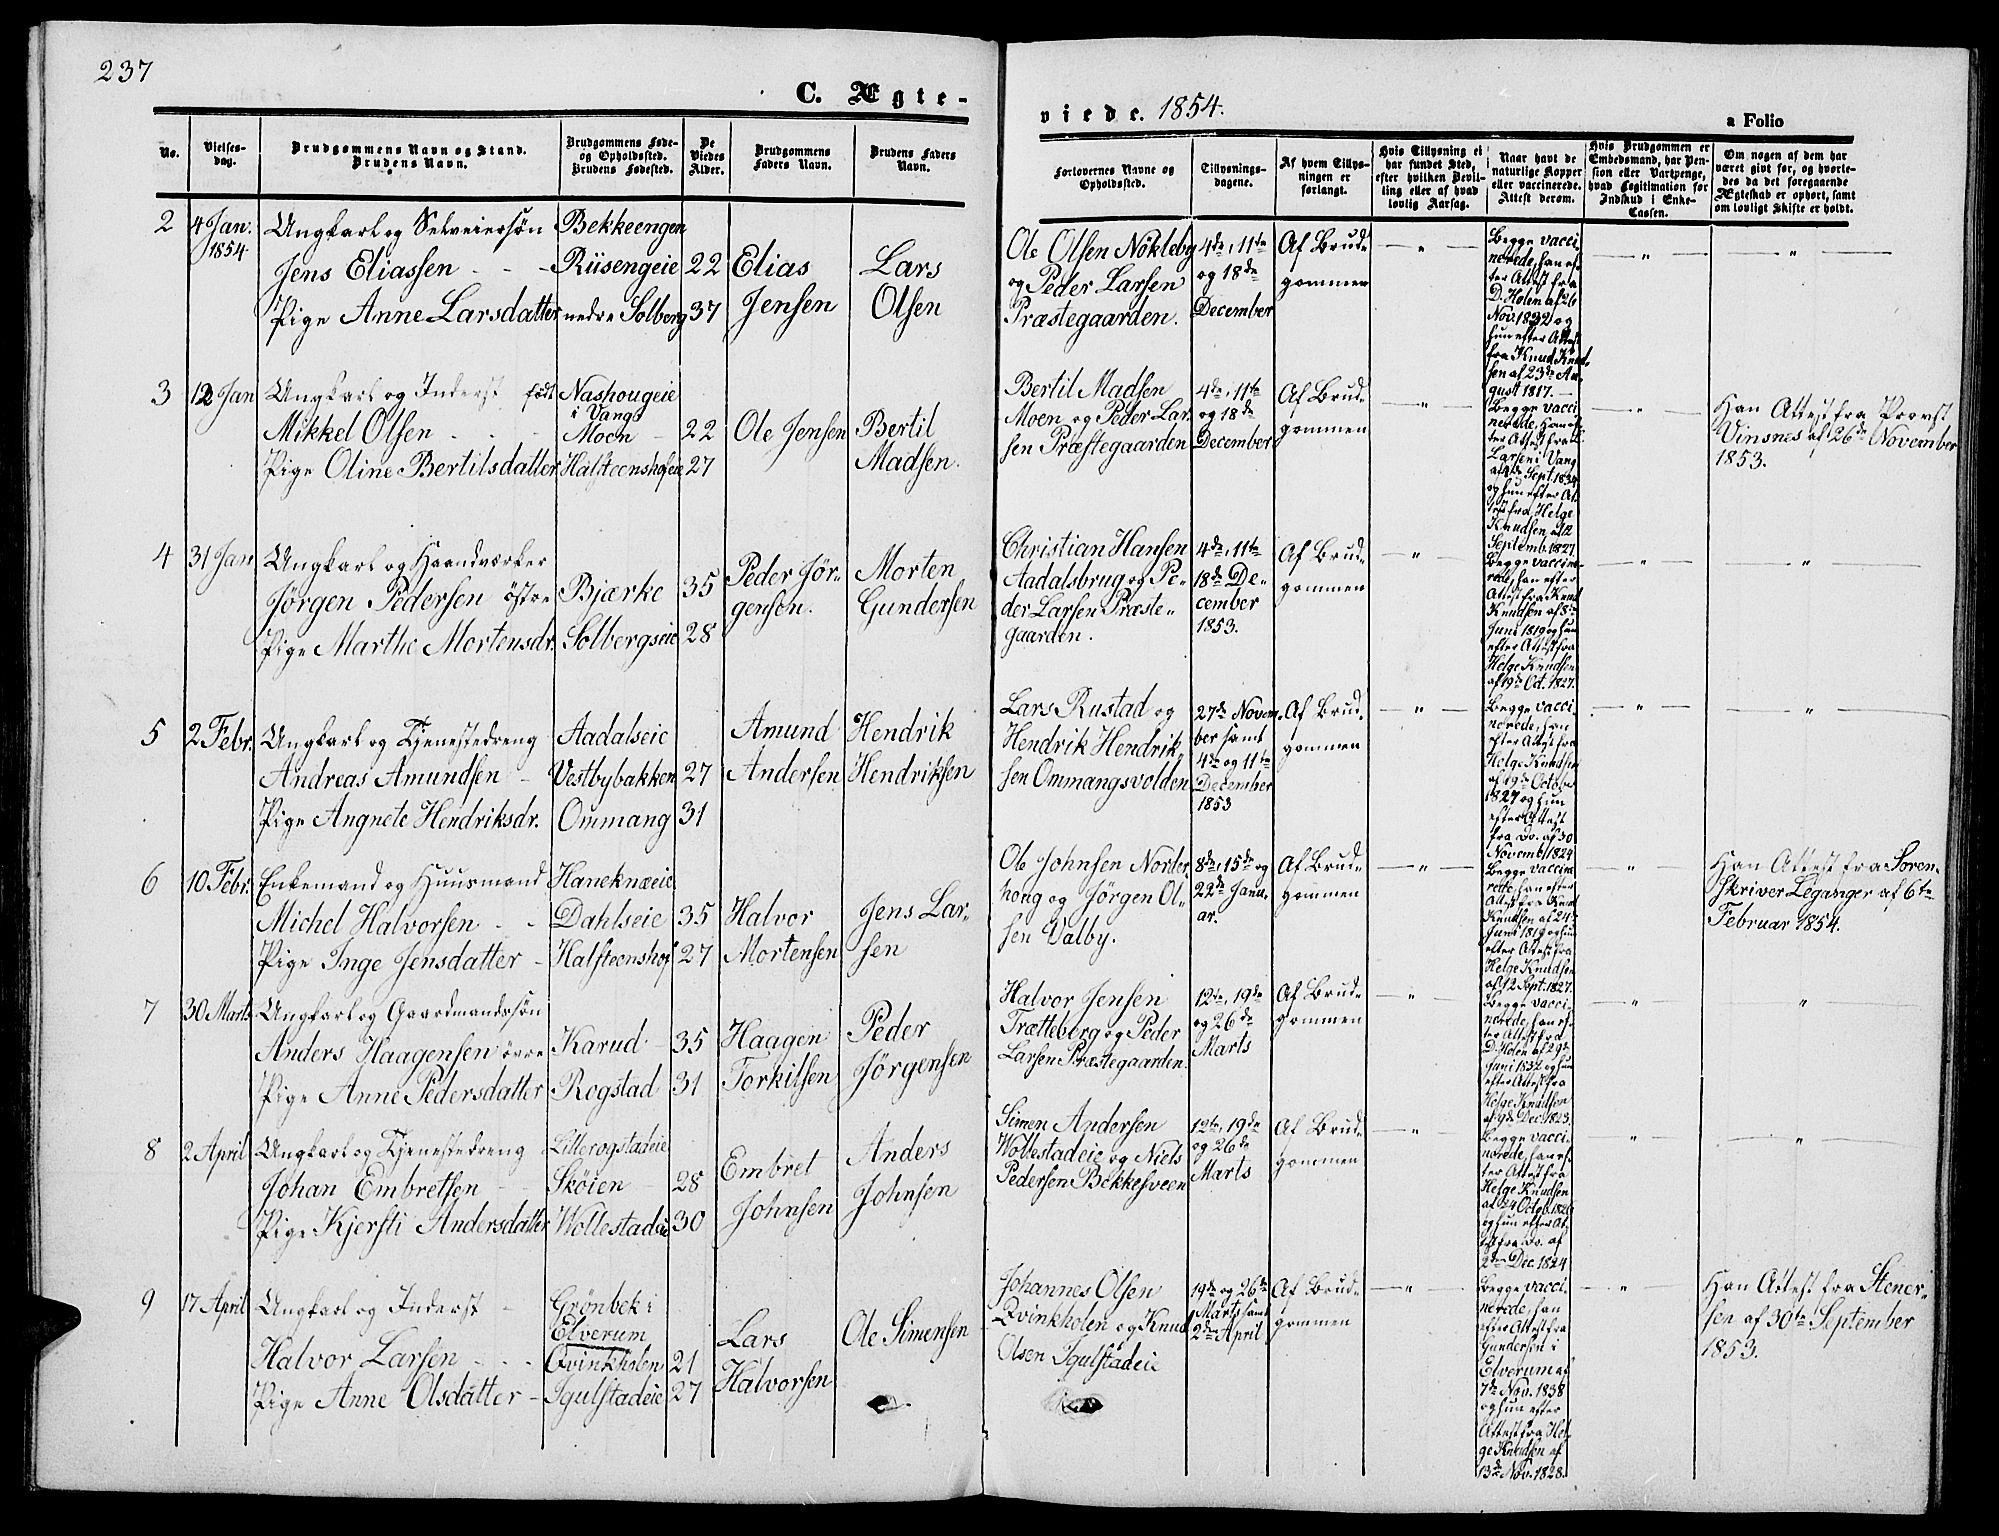 237
C. Ægte-
viede. 1854.
a Folio
No.
Vielses-
dag.
Brudgommens Navn og Stand.
Brudens Navn.
Brudgommens Føde-
og Opholdssted.
Brudens Fødested.
De
Viedes
Alder.
Brudgommens
Faders Navn.
Brudens Faders
Navn.
Forlovernes Navne og
Opholdssted.
Tillysnings-
dagene.
Af hvem Tillys-
ningen er
forlangt.
Hvis Tillysning ei
har fundet Sted,
efter hvilken Bevil-
ling eller af hvad
lovlig Aarsag.
Naar havt de
naturlige Kopper
eller vaccinerede.
Attest derom.
Hvis Brudgommen er
Embedsmand, har Pen-
sion eller Vartpenge,
hvad Legitimation for
Indskud i Enke-
Cassen.
Om nogen af dem har
været gift før, og hvorle-
des da det foregaaende
Ægteskab er ophørt, samt
om lovligt Skifte er holdt.
2
4 Jan.
1854
Ungkarl og Selveiersøn
Jens Eliassen
Pige Anne Larsdatter
Bekkeengen
Riisengeie
nedre Solberg
22
37
Elias
Jensen
Lars
Olsen
Ole Olsen Nökleby
og Peder Larsen
Præstegaarden.
4de, 11te
og 18de
December
Af Brud-
gommen
Begge vacci-
nerede, han ef-
ter Attest fra
D. Holen af 26
Nov. 1832 og
hun efter Attest
fra Knud Knud-
sen af 23de Au-
gust 1817.
3
12 Jan
Ungkarl og Inderst født
Mikkel Olsen
Pige Oline Bertilsdatter
Nashougeie
i Vang
Moen
Halsteenshofeie
22
27
Ole Jensen
Bertil
Madsen.
Bertil Madsen
Moen og Peder Lar-
sen Præstegaarden
4de, 11te
og 18de
December
Af Brud-
gommen
Begge vacci-
nerede, han ef-
ter Attest fra
Larsen i Vang
Sept. 1834
og hun efter At-
test fra Helge
Knudsen af 12
Septemb. 1827.
Han Attest fra Provst
Vinsnes af 26de November
1853.
4
31 Jan
Ungkarl og Haandværker
Jörgen Pedersen östre
Pige Marthe Mortensdr.
Bjærke
Solbergseie
35
28
Peder Jör-
gensen.
Morten
Gundersen
Christian Hansen
Aadalsbrug og Pe-
der Larsen Præste-
gaarden.
4de, 11te
18de De-
cember
1853.
Af Brud-
gommen
Begge vaccine-
rede, han efter
Attest fra Knud
Knudsen af 8de
Juni 1819 og hun
efter Attest fra
Helge Knudsen
af 19de Oct. 1827.
5
2 Febr.
Ungkarl og Tjenestedreng
Andreas Amundsen
Pige Angnete Hendriksdr.
Aadalseie
Vestbybakken
Ommang
27
31
Amund
Andersen
Hendrik
Hendriksen
Lars Rustad og
Hendrik Hendrik-
sen Ommangsvolden
27de Novem-
ber samt
4de og 11te
December
1853
Af Brud-
gommen
Begge vacci-
nerede, han
efter Attest fra
Helge Knudsen
af 19de October
1827 og hun
efter Attest
fra Do. af 30
Novemb. 1824
6
10 Febr.
Enkemand og Huusmand
Michel Halvorsen
Pige Inge Jensdatter
Haneknæeie
Dahlseie
Halsteenshof
35
27
Halvor
Mortensen
Jens Lar-
sen
Ole Johnsen Norder-
houg og Jörgen Ol-
sen Valby.
8de, 15de og
22de Janu-
ar.
Af Brud-
gommen
Begge vaccine-
rede, han efter
Attest fra Knud
Knudsen af 24de
Juni 1819 og hun
efter Attest fra
Helge Knudsen
af 12 Sept. 1827.
Han Attest fra Soren-
skriver Léganger af 6te
Februar 1854.
7
30 Marts
Ungkarl og Gaardmandssön
Anders Haagensen övre
Pige Anne Pedersdatter
Karud
Rogstad
35
31
Haagen
Torkilsen
Peder
Jörgensen
Halvor Jensen
Trætteberg og Peder
Larsen Præstegaarden.
12te, 19de
og 26de
Marts
Af Brud-
gommen
Begge vacci-
nerede, han ef-
ter Attest fra
D. Holen af 29de
Juni 1832 og hun
efter Attest fra
Helge Knudsen
af 9de Dec. 1823.
8
2 April
Ungkarl og Tjenestedreng
Johan Embretsen
Pige Kjersti Andersdatter
Lillerogstadeie
Skøien
Wollestadeie
28
30
Embret
Johnsen
Anders
Johnsen
Simen Andersen
Wollestadeie og Niels
Pedersen Bekkesveen
12te, 19de
og 26de
Marts
Af Brud-
gommen
Begge vacci-
nerede, han ef-
ter Attest fra
Helge Knudsen
af 24 Octob. 1826
og hun efter At-
test fra Do. af
2den Dec. 1824
9
17 April
Ungkarl og Inderst
Halvor Larsen
Pige Anne Olsdatter
Grönbek i
Elverum
Qvinkholen
Igulstadeie
21
27
Lars
Halvorsen
Ole Simensen
Johannes Olsen
Qvinkholen og Knud
Olsen Igulstadeie
19de og 26de
Marts samt
2den April
Af Brud-
gommen
Begge vacci-
nerede, han
efter Attest fra
Gundersen i
Elverum af
7de Nov. 1838
og hun efter
Attest fra Hel-
ge Knudsen af
13de Nov. 1828.
Han Attest fra Stener-
sen af 30te September
1853.